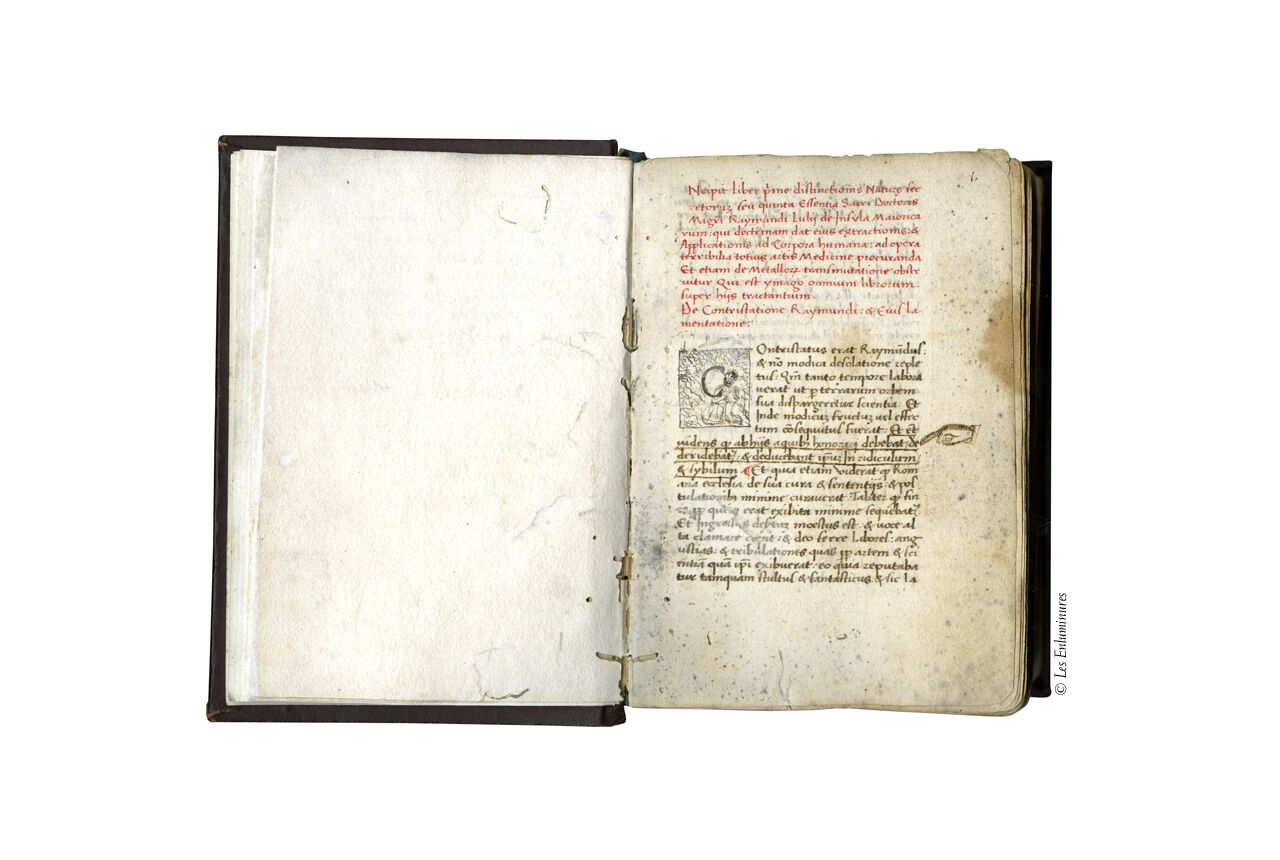 Ncipit liber p̃me distinctionis Naturę sec
retoruz seu quinta Essentia Sacri Doctoris
Magri Raymundi Lulij de Insula Maiorica
rum: qui doctrinam dat eius extractionis: &
Applicationis ad Corpora humana: ad opera
terribilia totius artis Medicine procuranda
Et etiam de Metallorz transmutatione obser
uitur Qui est ymago omnium librorum
super hijs tractantium.
De Contristatione Raymundi: & Eius la
mentatione:
C Ontristatus erat Raymũdus:
& nõ modica desolatione reple
tus: Qm̃ tanto tempore labora
uerat ut p terrarum orbem
sua dispargeretur scientia: Et
Inde modicuz fructuz uel effec
tum cõsequutus fuerat: Et et
uidens ꝙ ab hijs a quibz honorari debebat: de
ridebat̃: & deducebant ip̃uz In ridiculum
& sybilum ¶ Et quia etiam viderat ꝙ Rom
ana ecclesia de sua cura & sententijs & pos
tulationibz minime curauerat Taliter ꝙ fin
quez erat exibita minime sequebat̃
Et Ingressus desertuz moestus est: & uoce al
ta clamare cepit: & deo ferre Labores: ang
ustias: & tribulationes quas pp artem & sci
entiã quã ip̃i exibuerat: eo quia reputaba
tur tamquam stultus & fantasticus: & sic la
1.
© Les Enluminures